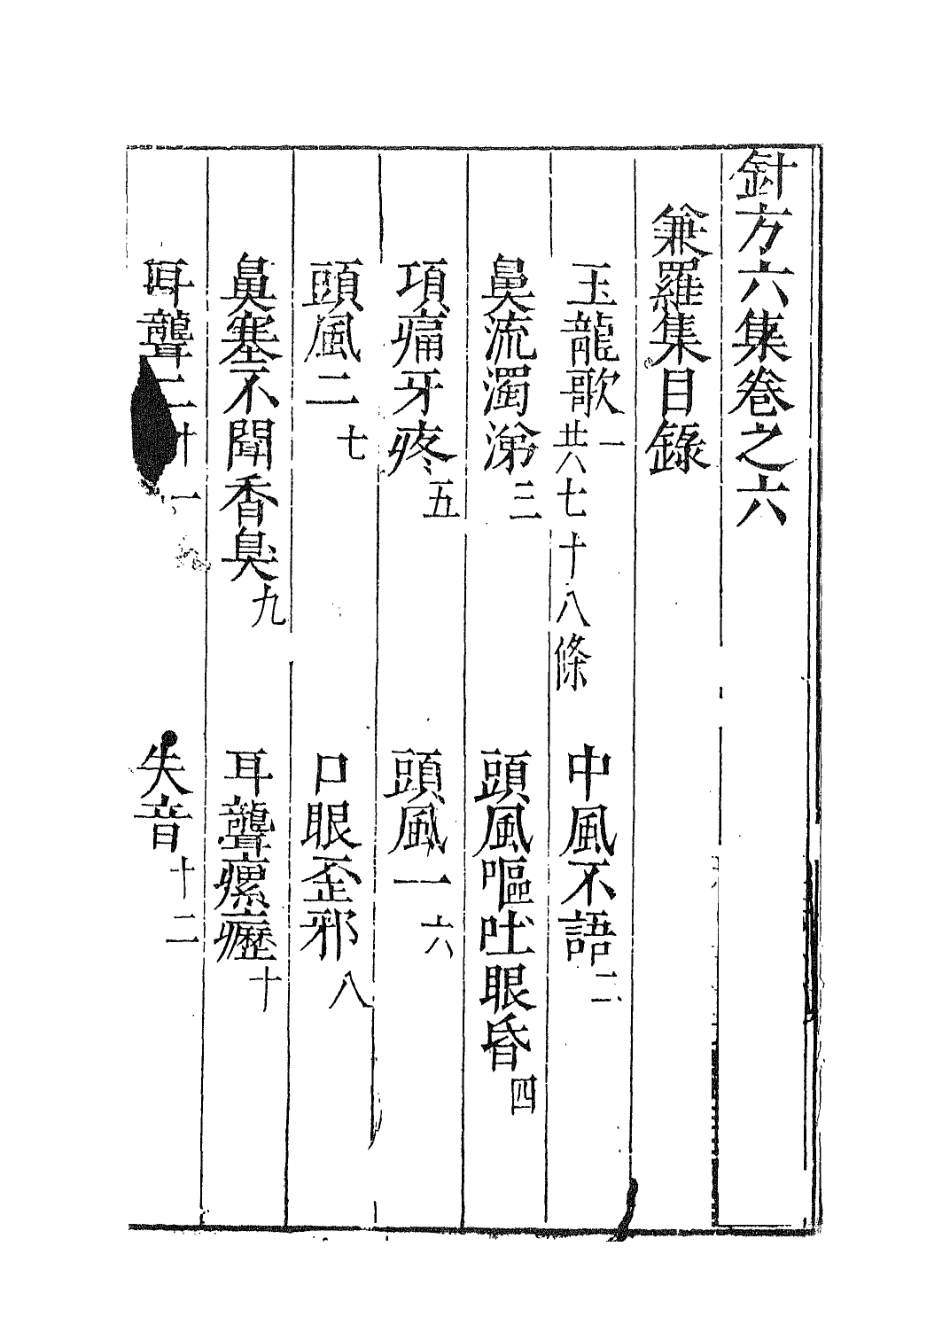 針方六集卷之六
兼羅集目錄
玉龍歌一共七十八條　中風不語二
鼻流濁涕三　頭風嘔吐眼昏四
項痛牙疼五　頭風一六
頭風二七　口眼歪邪八
鼻塞不聞香臭九　耳聾瘰癧十
耳聾二十一　失音十二